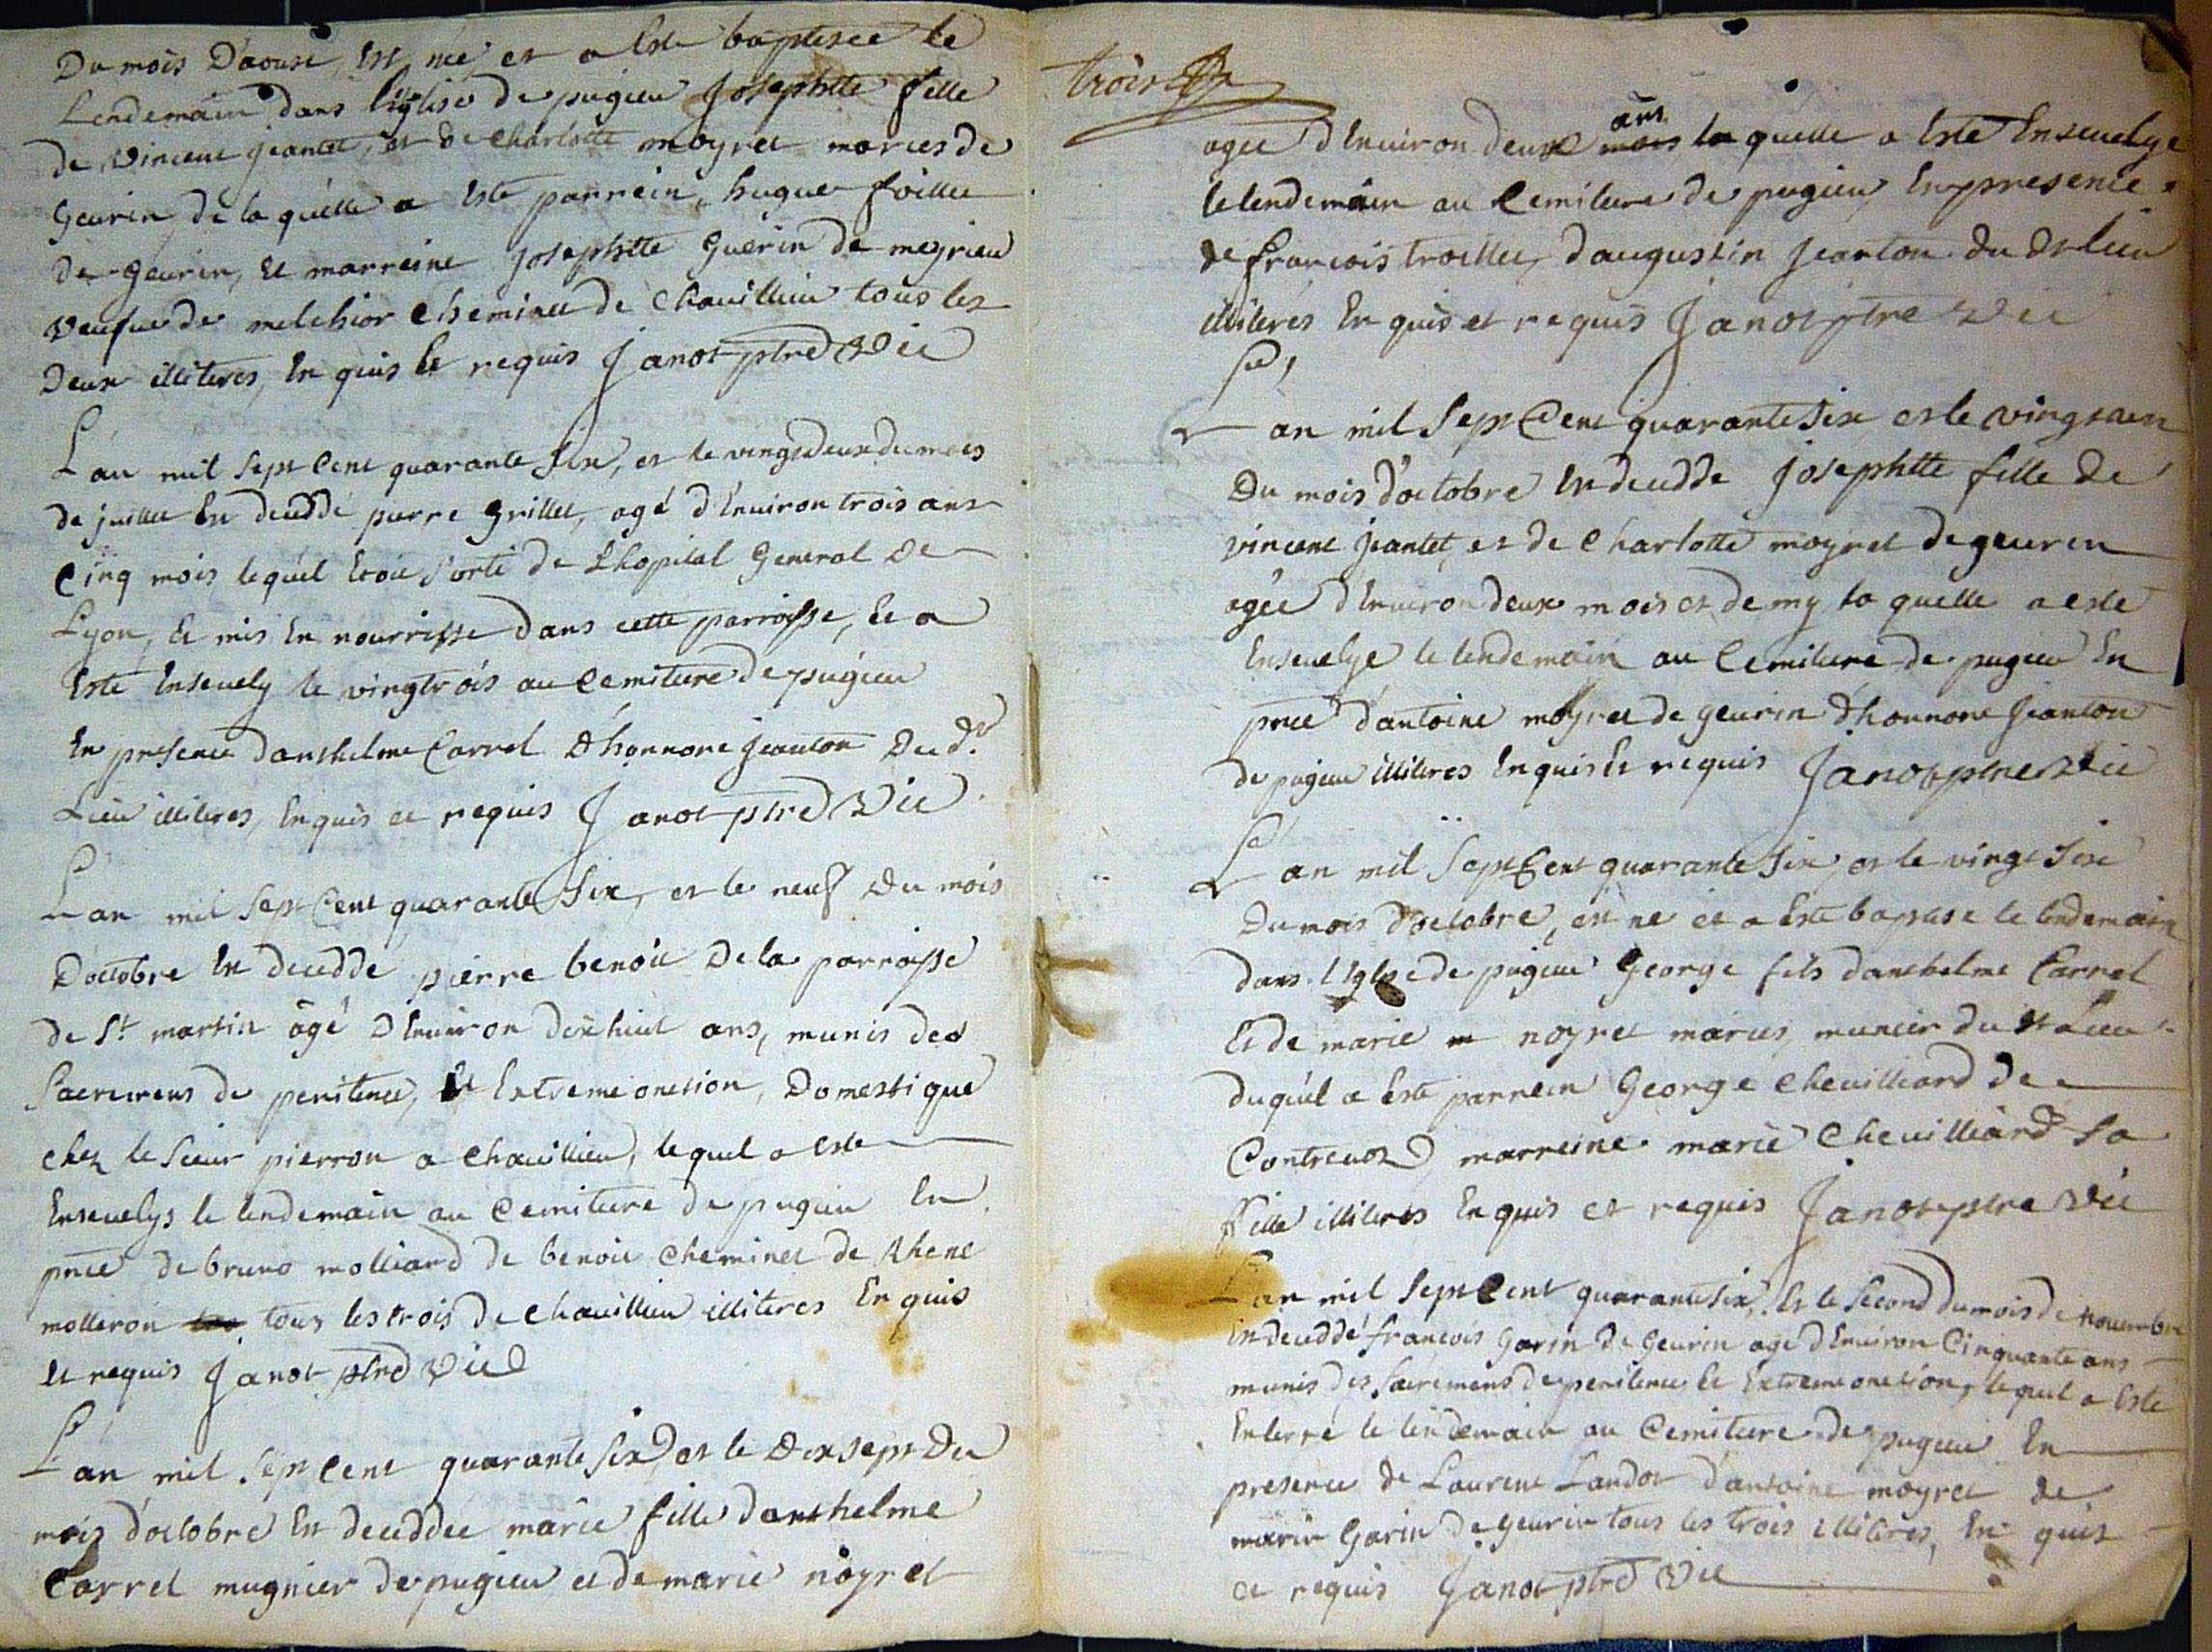 Du mois D'aoust, Est née et a Esté baptisée le
Lendemain dans l'Eglise de pugieu Josephtte fille
de vincent jeantet, et de Charlotte moyret maries de
Geurin, de la quelle a Esté parrein, hugue foillu
de geurin, Et marreine josephtte Guerin de meyrieu
veufue de melchior Cheminet de Chauillieu tous les
Deux illiteres, Enquis Et requis Janot ptre Vic
L'an mil Sept Cent quarante Six, et le vingtdeux du mois
de juillet Est deceddé pierre Grillet, agé d'Enuiron trois ans
Cinq mois, lequel Etoit Sorti de Lhopital General De
Lyon, Et mis En nourrisse Dans cette parroisse, Et a
Esté Enseuely le vingtrois au Cemitiere de pugieu
En presence danthelme Carrel D'honnore jeanton Du d.t
Lieu illiteres, Enquis et requis Janot ptre Vic
L'an mil Sept Cent quarante Six, et le neuf Du mois
D'octobre Est deceddé pierre benoit De la parroisse
de St. martin âgé D'Enuiron dixhuit ans, munis des
Sacremens de penitence, Et Extreme onction, Domestique
chez le Sieur pierron a Chauillieu, lequel a esté
Enseuelys le lendemain au Cemitiere de pugieu En
pnce de bruno molliard de benoit Cheminet de Rhene
molleron tous les trois de Chauillieu illiteres Enquis
Et requis Janot ptre Vic
L'an mil Sept Cent quarante Six, et le Dixsept Du
mois d'octobre Est deceddée marie fille danthelme
Carrel mugnier de pugieu et de marie noyret
trois
agée d'Enuiron deux mois ans la quelle a Esté Enseuelye
le lendemain au Cemitiere de pugieu En presence
de francois troillet, d'augustin jeanton du dt lieu
illiteres Enquis et requis Janot ptre Vic
L'an mil Sept Cent quarante Six et le vingt un
Du mois d'octobre Est deceddée josephtte fille de
vincent jeantet, et de Charlotte moyret de geurin
agée d'Enuiron deux mois et demy la quelle a esté
Enseuelye le lendemain au Cemitiere de pugieu En
pnce d'antoine moyret de geurin d'honnore jeanton
de pugieu illiteres Enquis Et requis Janot ptre Vic
L'an mil Sept Cent quarante Six, et le vingt Six
Du mois d'octobre, est né et a Esté baptisé le lendemain
dans l'Eglise de pugieu George fils danthelme Carrel
Et de marie m noyret maries, munier du dt lieu
duquel a Esté parrein George Cheuilliard de
Contreuoz marreine marie Cheuilliard Sa
fille illiteres Enquis et requis Janot ptre Vic
L'an mil Sept Cent quarante Six, Et le Second du mois de nouembre
Est deceddé francois Garin de Geurin agé d'Enuiron Cinquante ans
munis des Sacremens de penitence Et Extreme onction, lequel a Esté
Enterré le lendemain au Cemitiere de pugieu En
presence de Laurent Landot d'antoine moyret de
marin Garin de geurin tous les trois illiteres, Enquis
et requis Janot ptre Vic